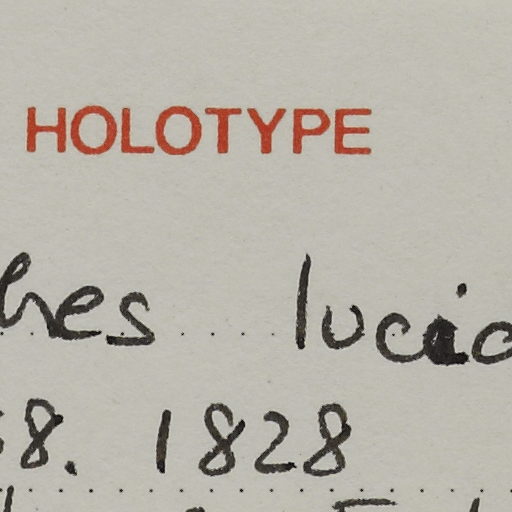 HOLOTYPE
hes lucid
58. 1828